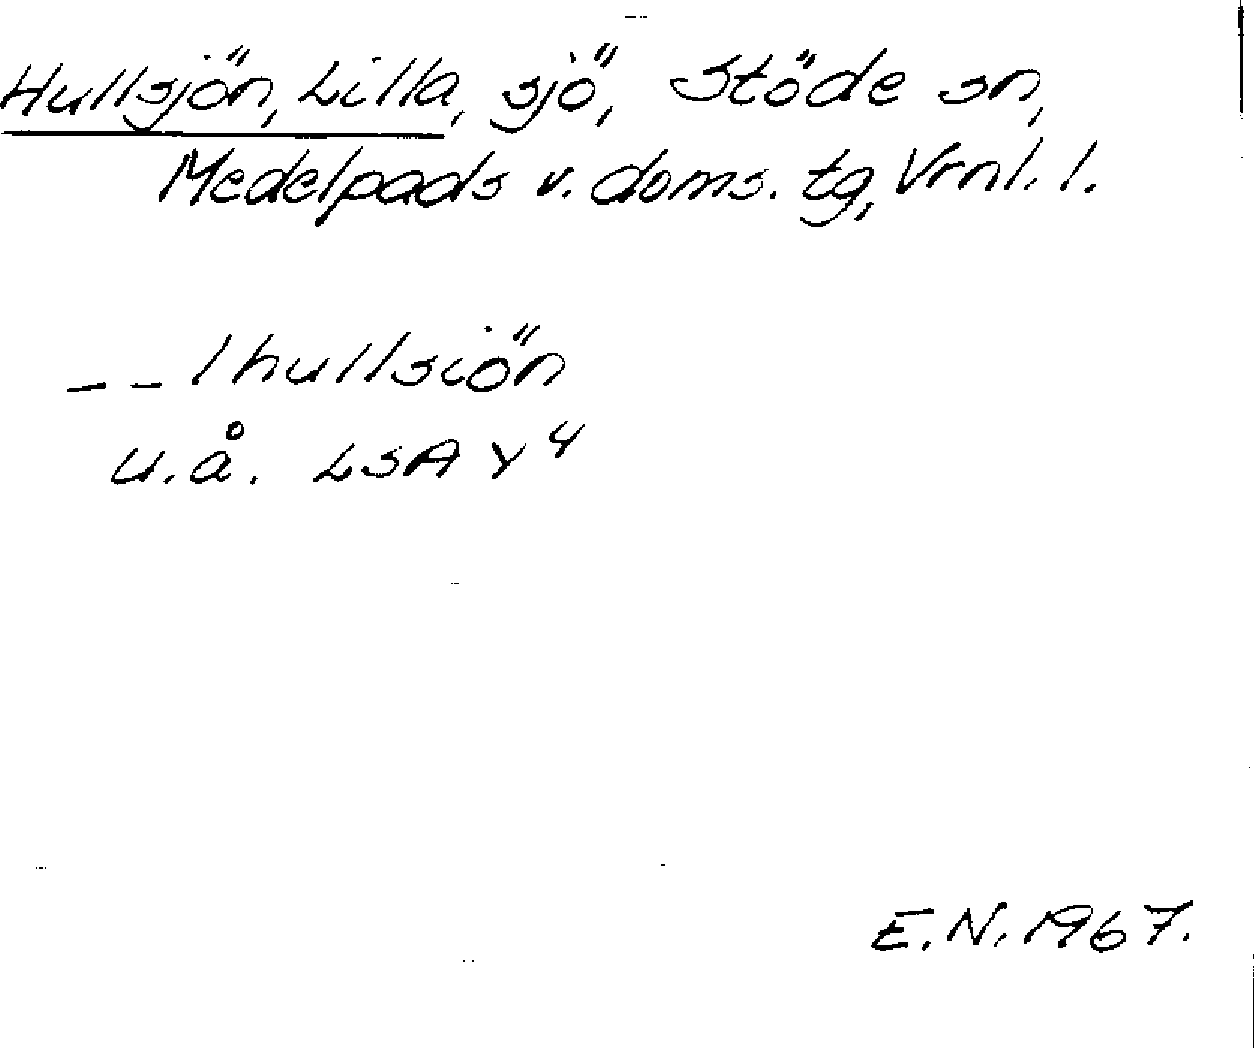 Hullsjön, Lilla, sjö, Stöde sn,
Medelpads v. doms. tg, Vrnl. l.
_ _ lhullsiön
u.å. LSA Y4
E.N. 1967.